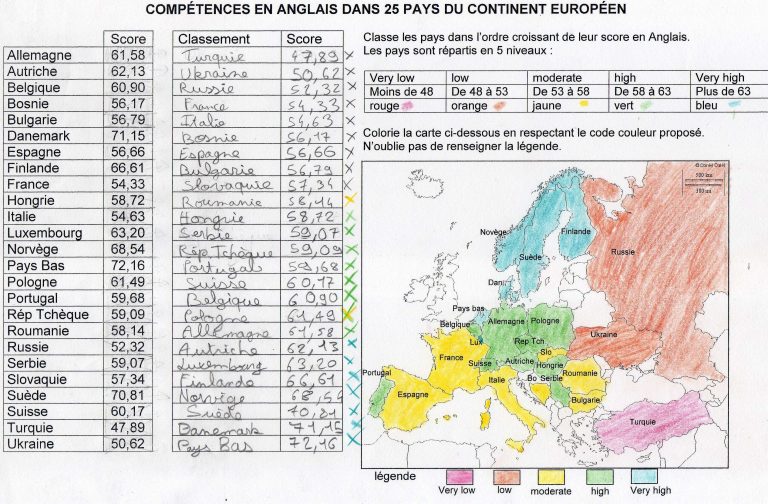 COMPÉTENCES EN ANGLAIS DANS 25 PAYS DU CONTINENT EUROPÉEN
Score
Allemagne 61,58
Autriche 62,13
Belgique 60,90
Bosnie 56,17
Bulgarie 56,79
Danemark 71,15
Espagne 56,66
Finlande 66,61
France 54,33
Hongrie 58,72
Italie 54,63
Luxembourg 63,20
Norvège 68,54
Pays Bas 72,16
Pologne 61,49
Portugal 59,68
Rép Tchèque 59,09
Roumanie 58,14
Russie 52,32
Serbie 59,07
Slovaquie 57,34
Suède 70,81
Suisse 60,17
Turquie 47,89
Ukraine 50,62
Classement Score
Turquie 47,89
Ukraine 50,62
Russie 52,32
France 54,33
Italie 54,63
Bosnie 56,17
Espagne 56,66
Bulgarie 56,79
Slovaquie 57,34
Roumanie 58,14
Hongrie 58,72
Serbie 59,07
Rép Tchèque 59,09
Portugal 59,68
Suisse 60,17
Belgique 60,90
Pologne 61,49
Allemagne 61,58
Autriche 62,13
Luxembourg 63,20
Finlande 66,61
Norvège 68,54
Suède 70,81
Danemark 71,15
Pays Bas 72,16
Classe les pays dans l'ordre croissant de leur score en Anglais.
Les pays sont répartis en 5 niveaux :
Very low low moderate high Very high
Moins de 48 De 48 à 53 De 53 à 58 De 58 à 63 Plus de 63
rouge orange jaune vert bleu
Colorie la carte ci-dessous en respectant le code couleur proposé.
N'oublie pas de renseigner la légende.
500 km
300 mi
Novège
Finlande
Suède
Russie
Dan
Pays bas
Belgique
Allemagne
Pologne
Lux
Rep Tch
Ukraine
France
Slo
Autriche
Suisse
Hongrie
Roumanie
Portugal
Italie
Bo
Serbie
Espagne
Bulgarie
Turquie
légende
Very low low moderate high Very high